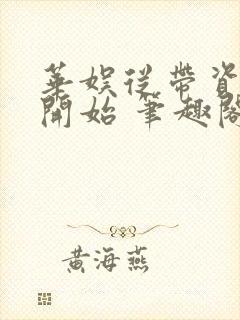 華娛從帶資
開始 筆趣閣
黃海燕